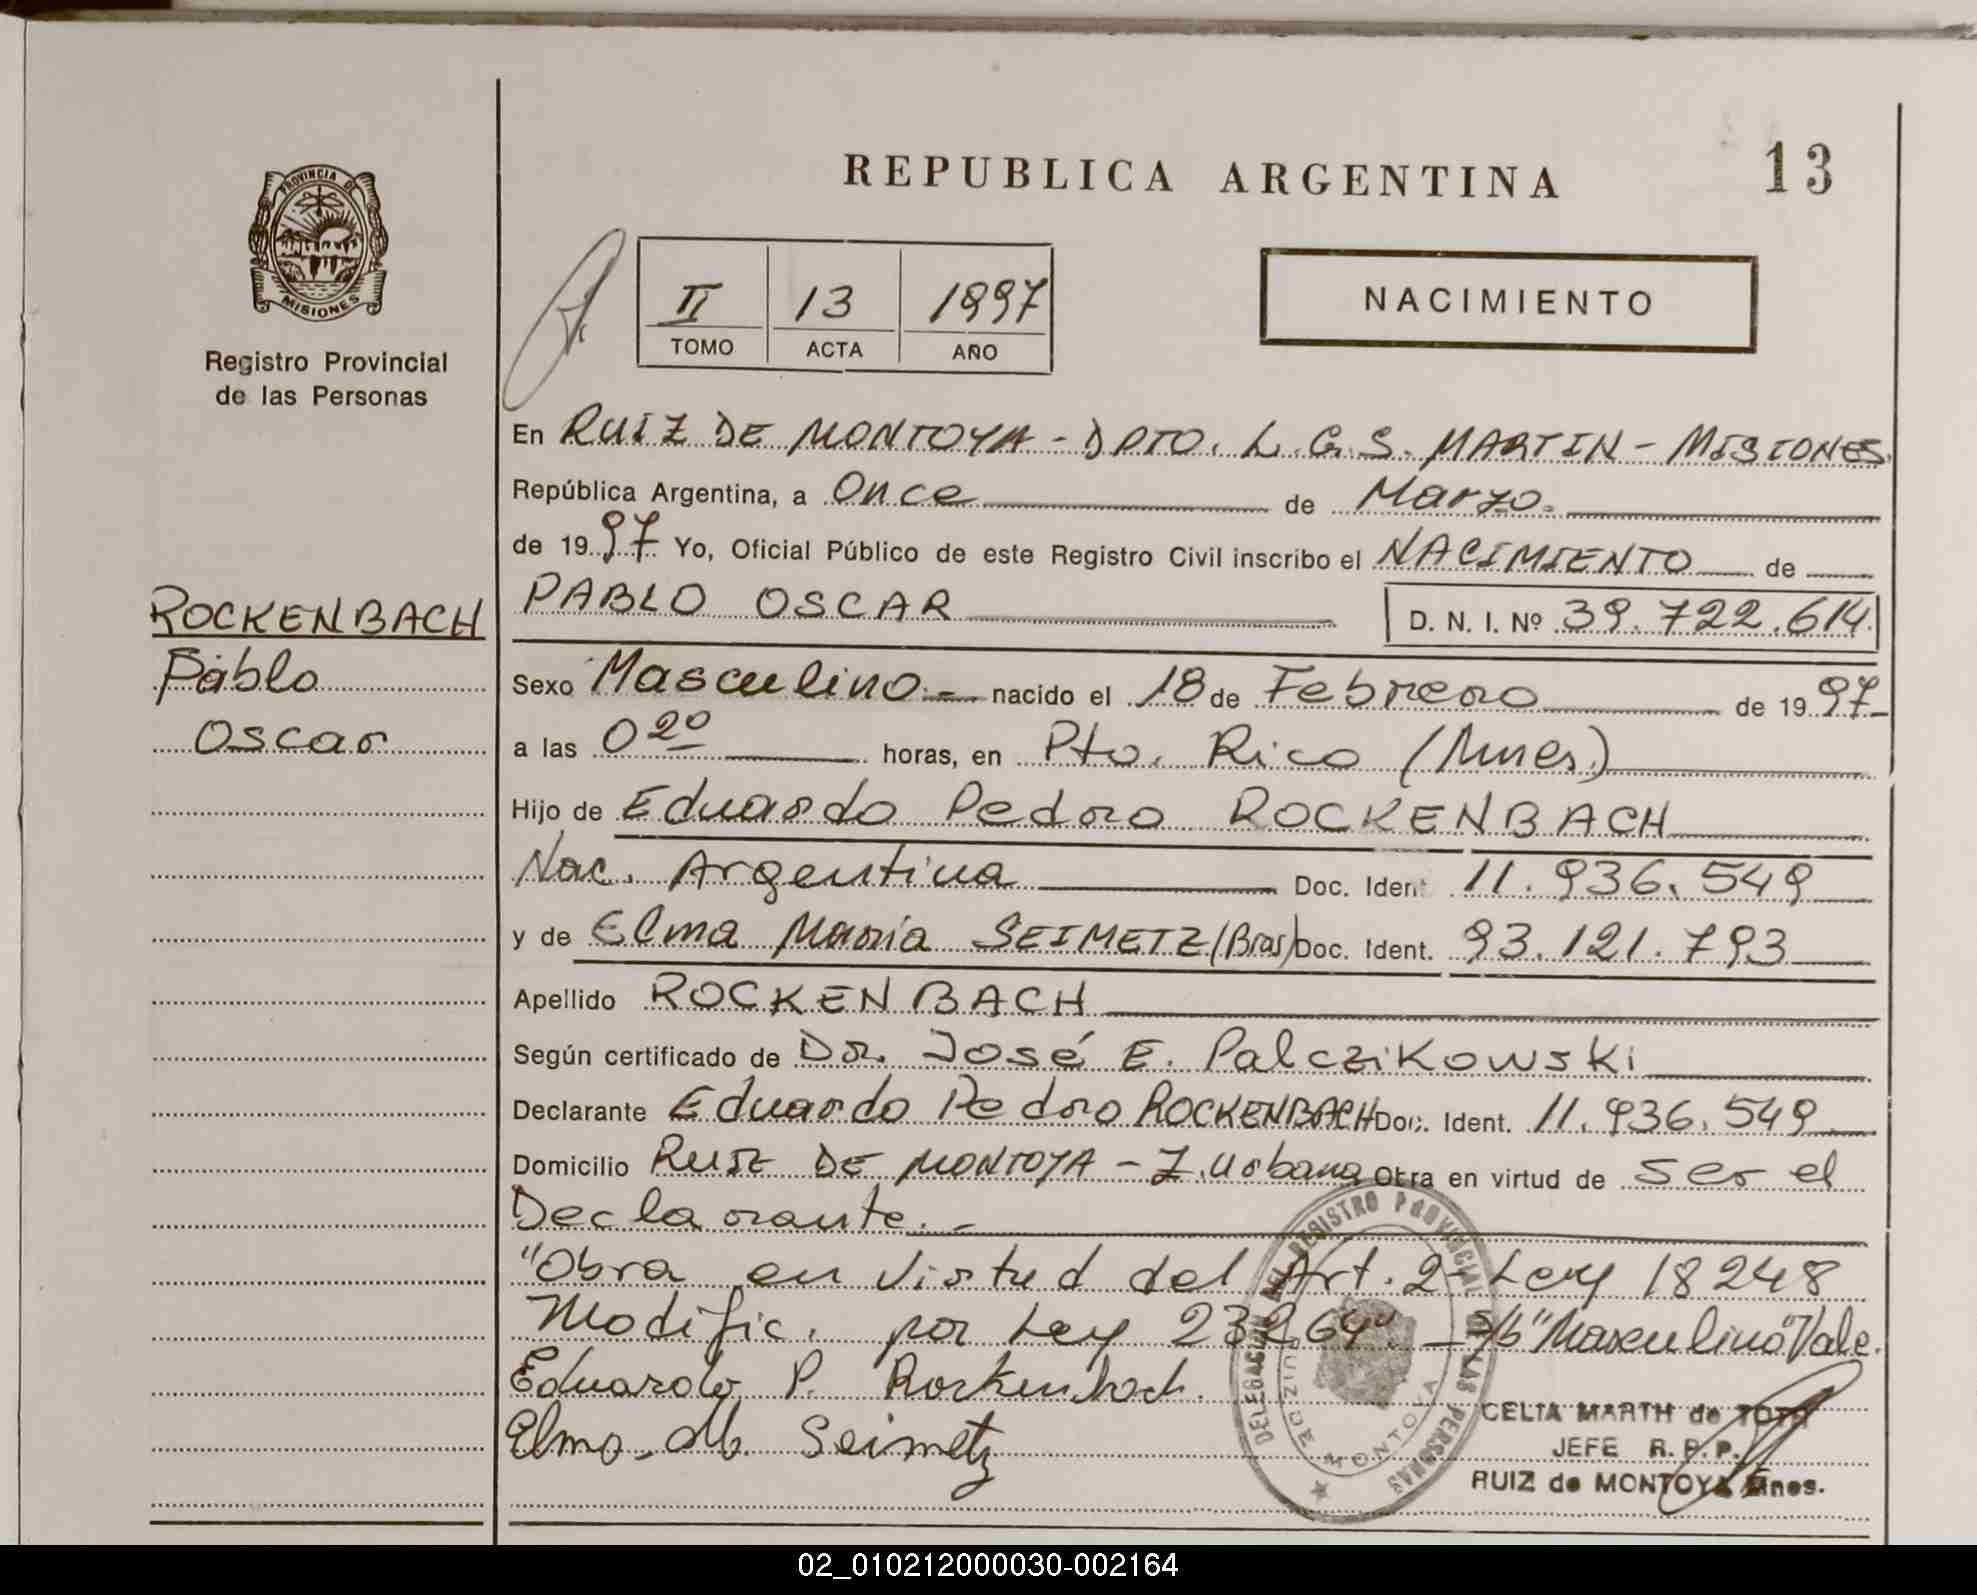 REPUBLICA ARGENTINA
13
PROVINCIA DE
MISIONES
Registro Provincial
de las Personas
II 13 1997
TOMO ACTA AÑO
NACIMIENTO
En RUIZ DE MONTOYA - DPTO. L.G.S. MARTIN - MISIONES.
República Argentina, a Once de Marzo.
de 19 97 Yo, Oficial Público de este Registro Civil inscribo el NACIMIENTO de
PABLO OSCAR D. N. I. Nº 39.722.614
ROCKENBACH
Pablo
Oscar
Sexo Masculino.- nacido el 18 de Febrero de 19 97
a las 0 20 horas, en Pto. Rico (Mnes.)
Hijo de Eduardo Pedro ROCKENBACH
Nac. Argentina Doc. Ident 11.936.549
y de Elma María SEIMETZ (Bras) Doc. Ident. 93.121.793
Apellido ROCKENBACH
Según certificado de Dr. José E. Palczikowski
Declarante Eduardo Pedro ROCKENBACH Doc. Ident. 11.936.549
Domicilio RUIZ DE MONTOYA - Z. Urbana Obra en virtud de ser el
Declarante.-
"Obra en virtud del Art. 2- Ley 18248
Modific. por Ley 23264". - S/b "Masculino" Vale.
Eduardo P. Rockenbach.
Elma M. Seimetz
DELEGACION DEL REGISTRO PROVINCIAL DE LAS PERSONAS
RUIZ DE MONTOYA
CELIA MARTH de TOTH
JEFE R. P. P.
RUIZ de MONTOYA Mnes.
02_010212000030-002164